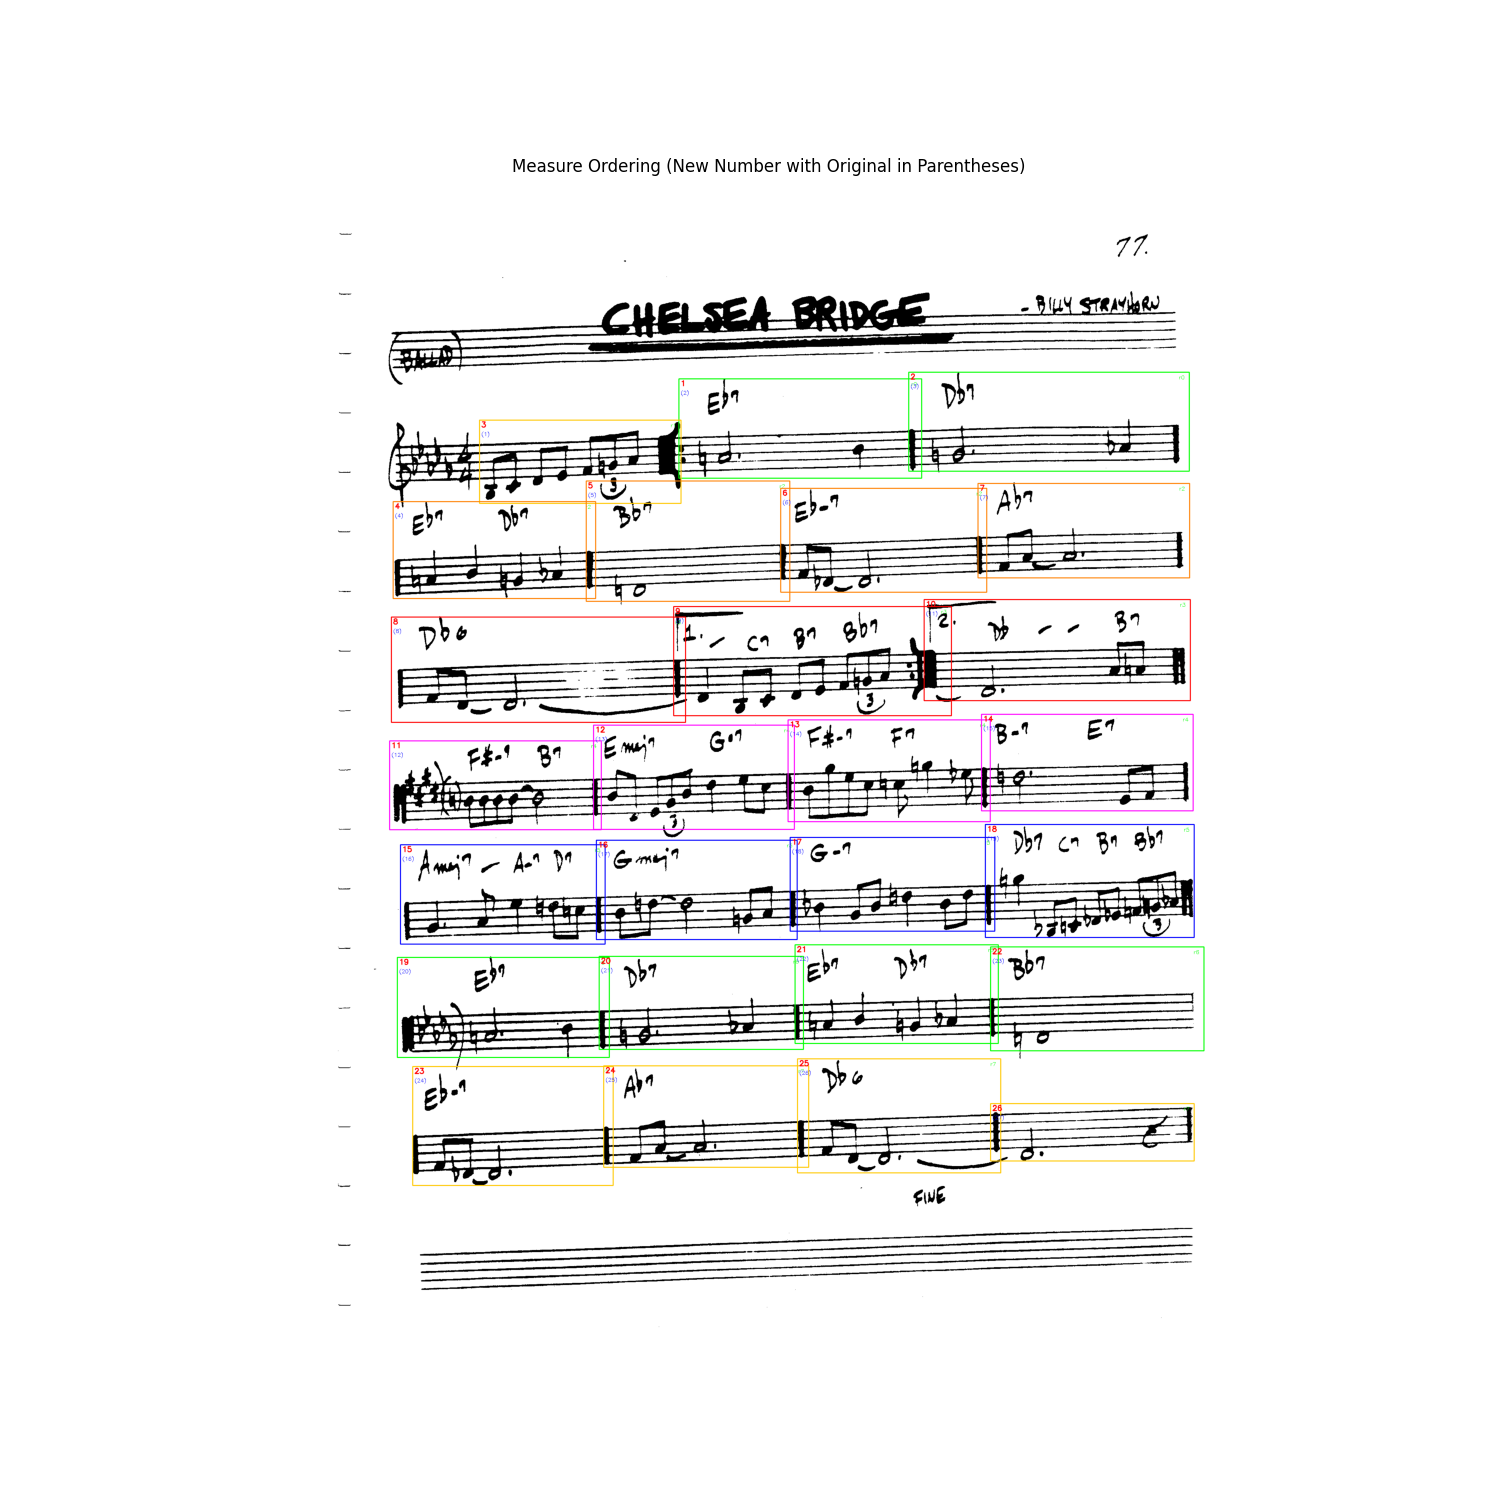 Measure Ordering (New Number with Original in Parentheses)
77.
CHELSEA BRIDGE
- BILLY STRAYHORN
(BALLAD)
1 (2) Eb7 2 (3) Db7
3 (1) 3
4 (4) Eb7 Db7 5 (5) Bb7 6 (6) Eb-7 7 (7) Ab7
8 (8) Db6 9 1. - C7 B7 Bb7 3 10 (11) 2. Db - - B7
11 (12) F#-7 B7 12 (13) Emaj7 G°7 3 13 (14) F#-7 F7 14 (15) B-7 E7
15 (16) Amaj7 - A-7 D7 16 (17) Gmaj7 17 (18) G-7 18 (19) Db7 C7 B7 Bb7 3
19 (20) Eb7 20 (21) Db7 21 (22) Eb7 Db7 22 (23) Bb7
23 (24) Eb-7 24 (25) Ab7 25 (26) Db6 26
FINE